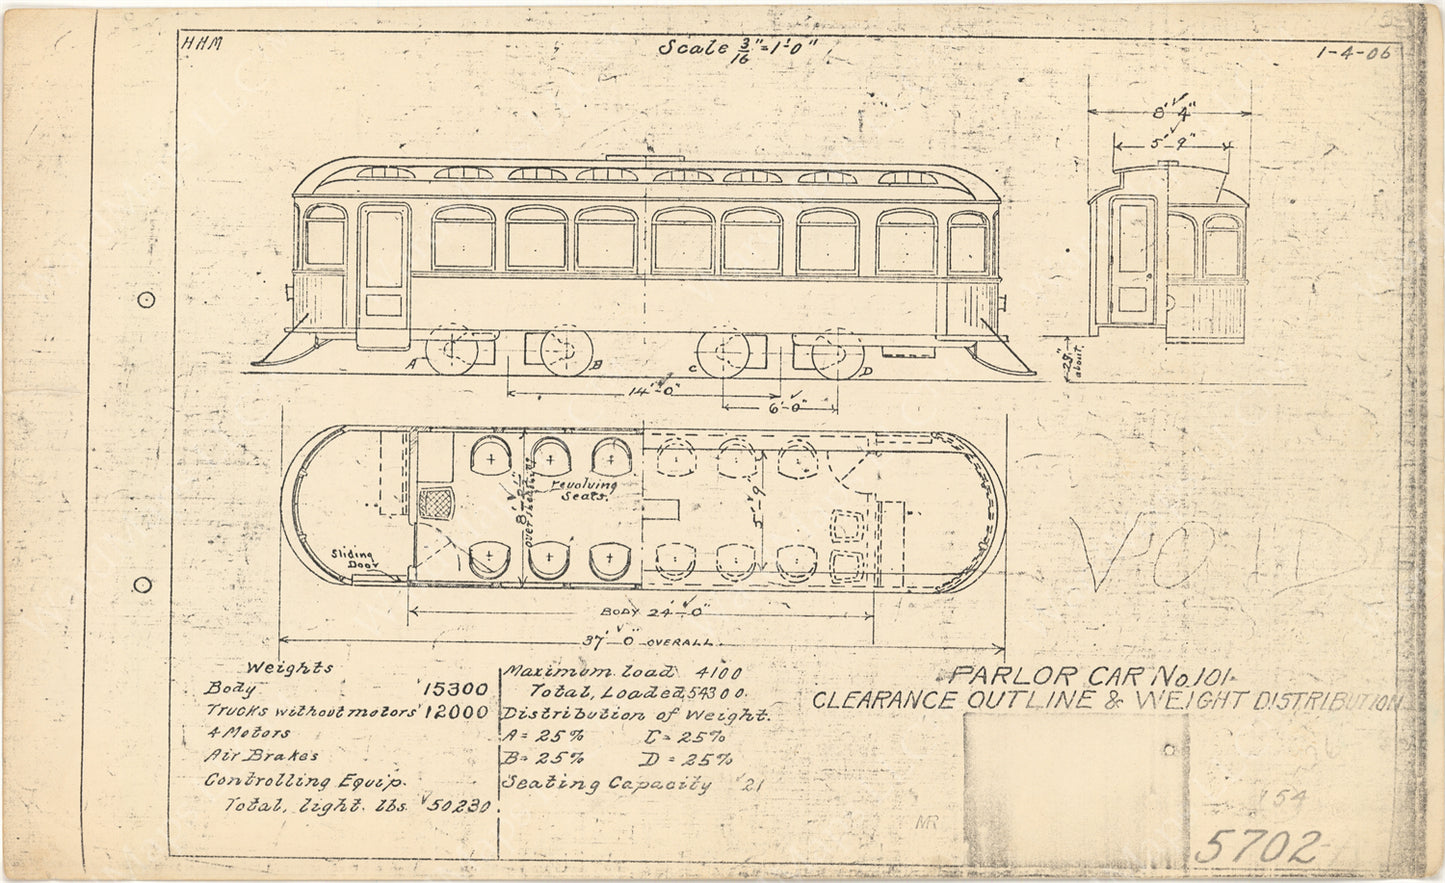 HHM
Scale 3/16"=1'-0"
1-4-06
8' 4"
5'-9"
A
B
C
D
14'-0"
6'-0"
29"
about.
8'-0½"
over sheathing
revolving
Seats.
5'-9"
Sliding
Door
BODY 24'-0"
37'-0" OVERALL.
VOID
Weights
Body 15300
Trucks without motors 12000
4 Motors
Air Brakes
Controlling Equip.
Total, light. lbs. 50230.
Maximum load 4100
Total, Loaded 54300.
Distribution of Weight.
A = 25% C = 25%
B = 25% D = 25%
Seating Capacity 21
PARLOR CAR No. 101.
CLEARANCE OUTLINE & WEIGHT DISTRIBUTION.
154
MR
5702